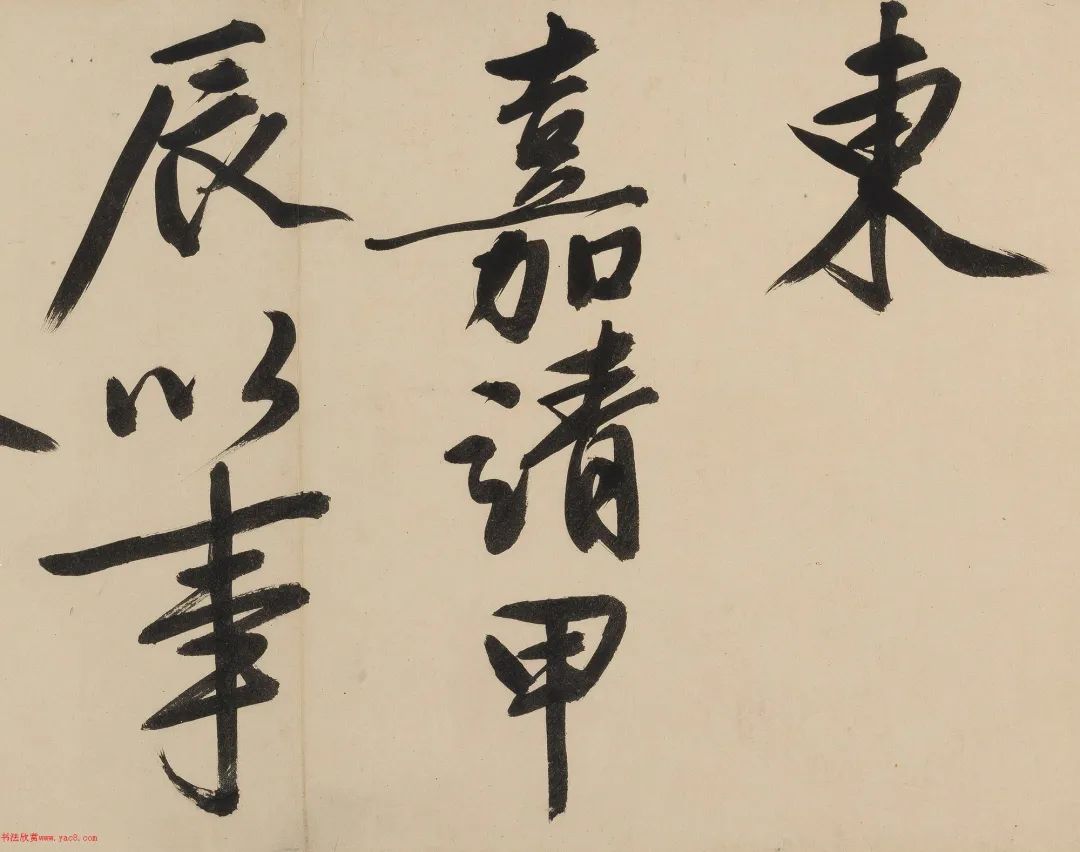 東
嘉請甲
辰以事
书法欣赏www.yac8.com